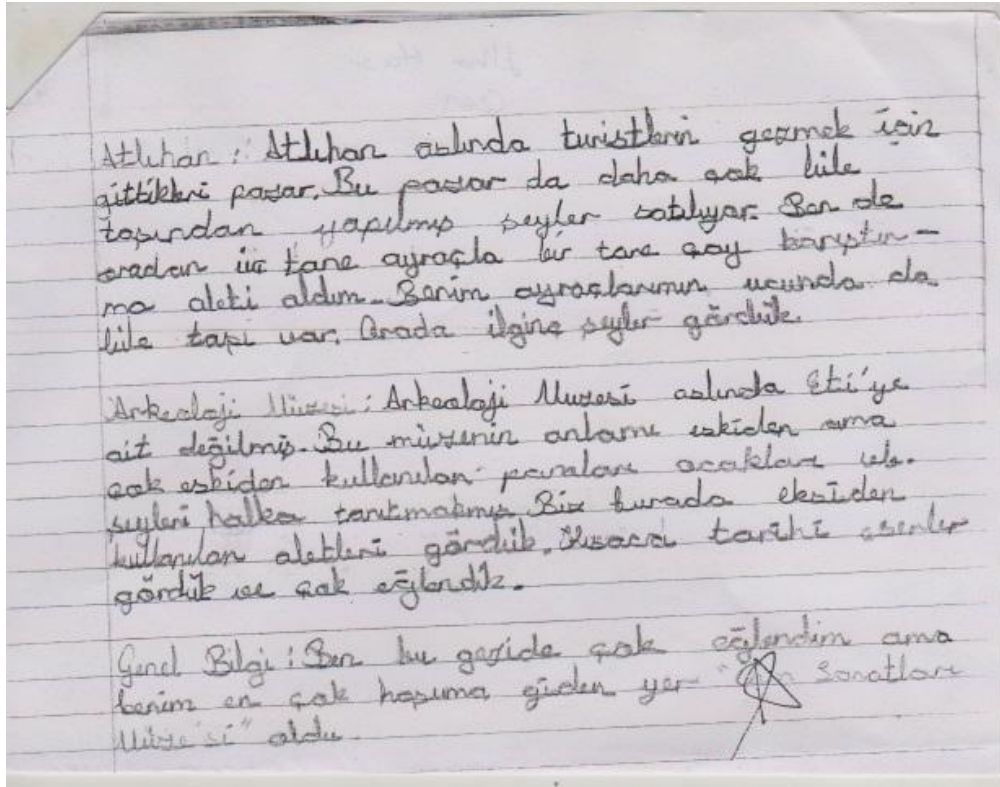 Atlıhan : Atlıhan aslında turistlerin gezmek için
gittikleri pazar. Bu pazar da daha çok lüle
taşından yapılmış şeyler satılıyor. Ben de
oradan üç tane ayraçla bir tane çay karıştır-
ma aleti aldım. Benim ayraçlarımın ucunda da
lüle taşı var. Orada ilginç şeyler gördük.
Arkeoloji Müzesi : Arkeoloji Müzesi aslında Eti'ye
ait değilmiş. Bu müzenin anlamı eskiden ama
çok eskiden kullanılan paraları ocakları vb.
şeyleri halka tanıtmakmış Biz burada eksiden
kullanılan aletleri gördük. Kısacası tarihi eserler
gördük ve çok eğlendik.
Genel Bilgi : Ben bu gezide çok eğlendim ama
benim en çok hoşuma giden yer Sanatları
Müzesi" oldu.